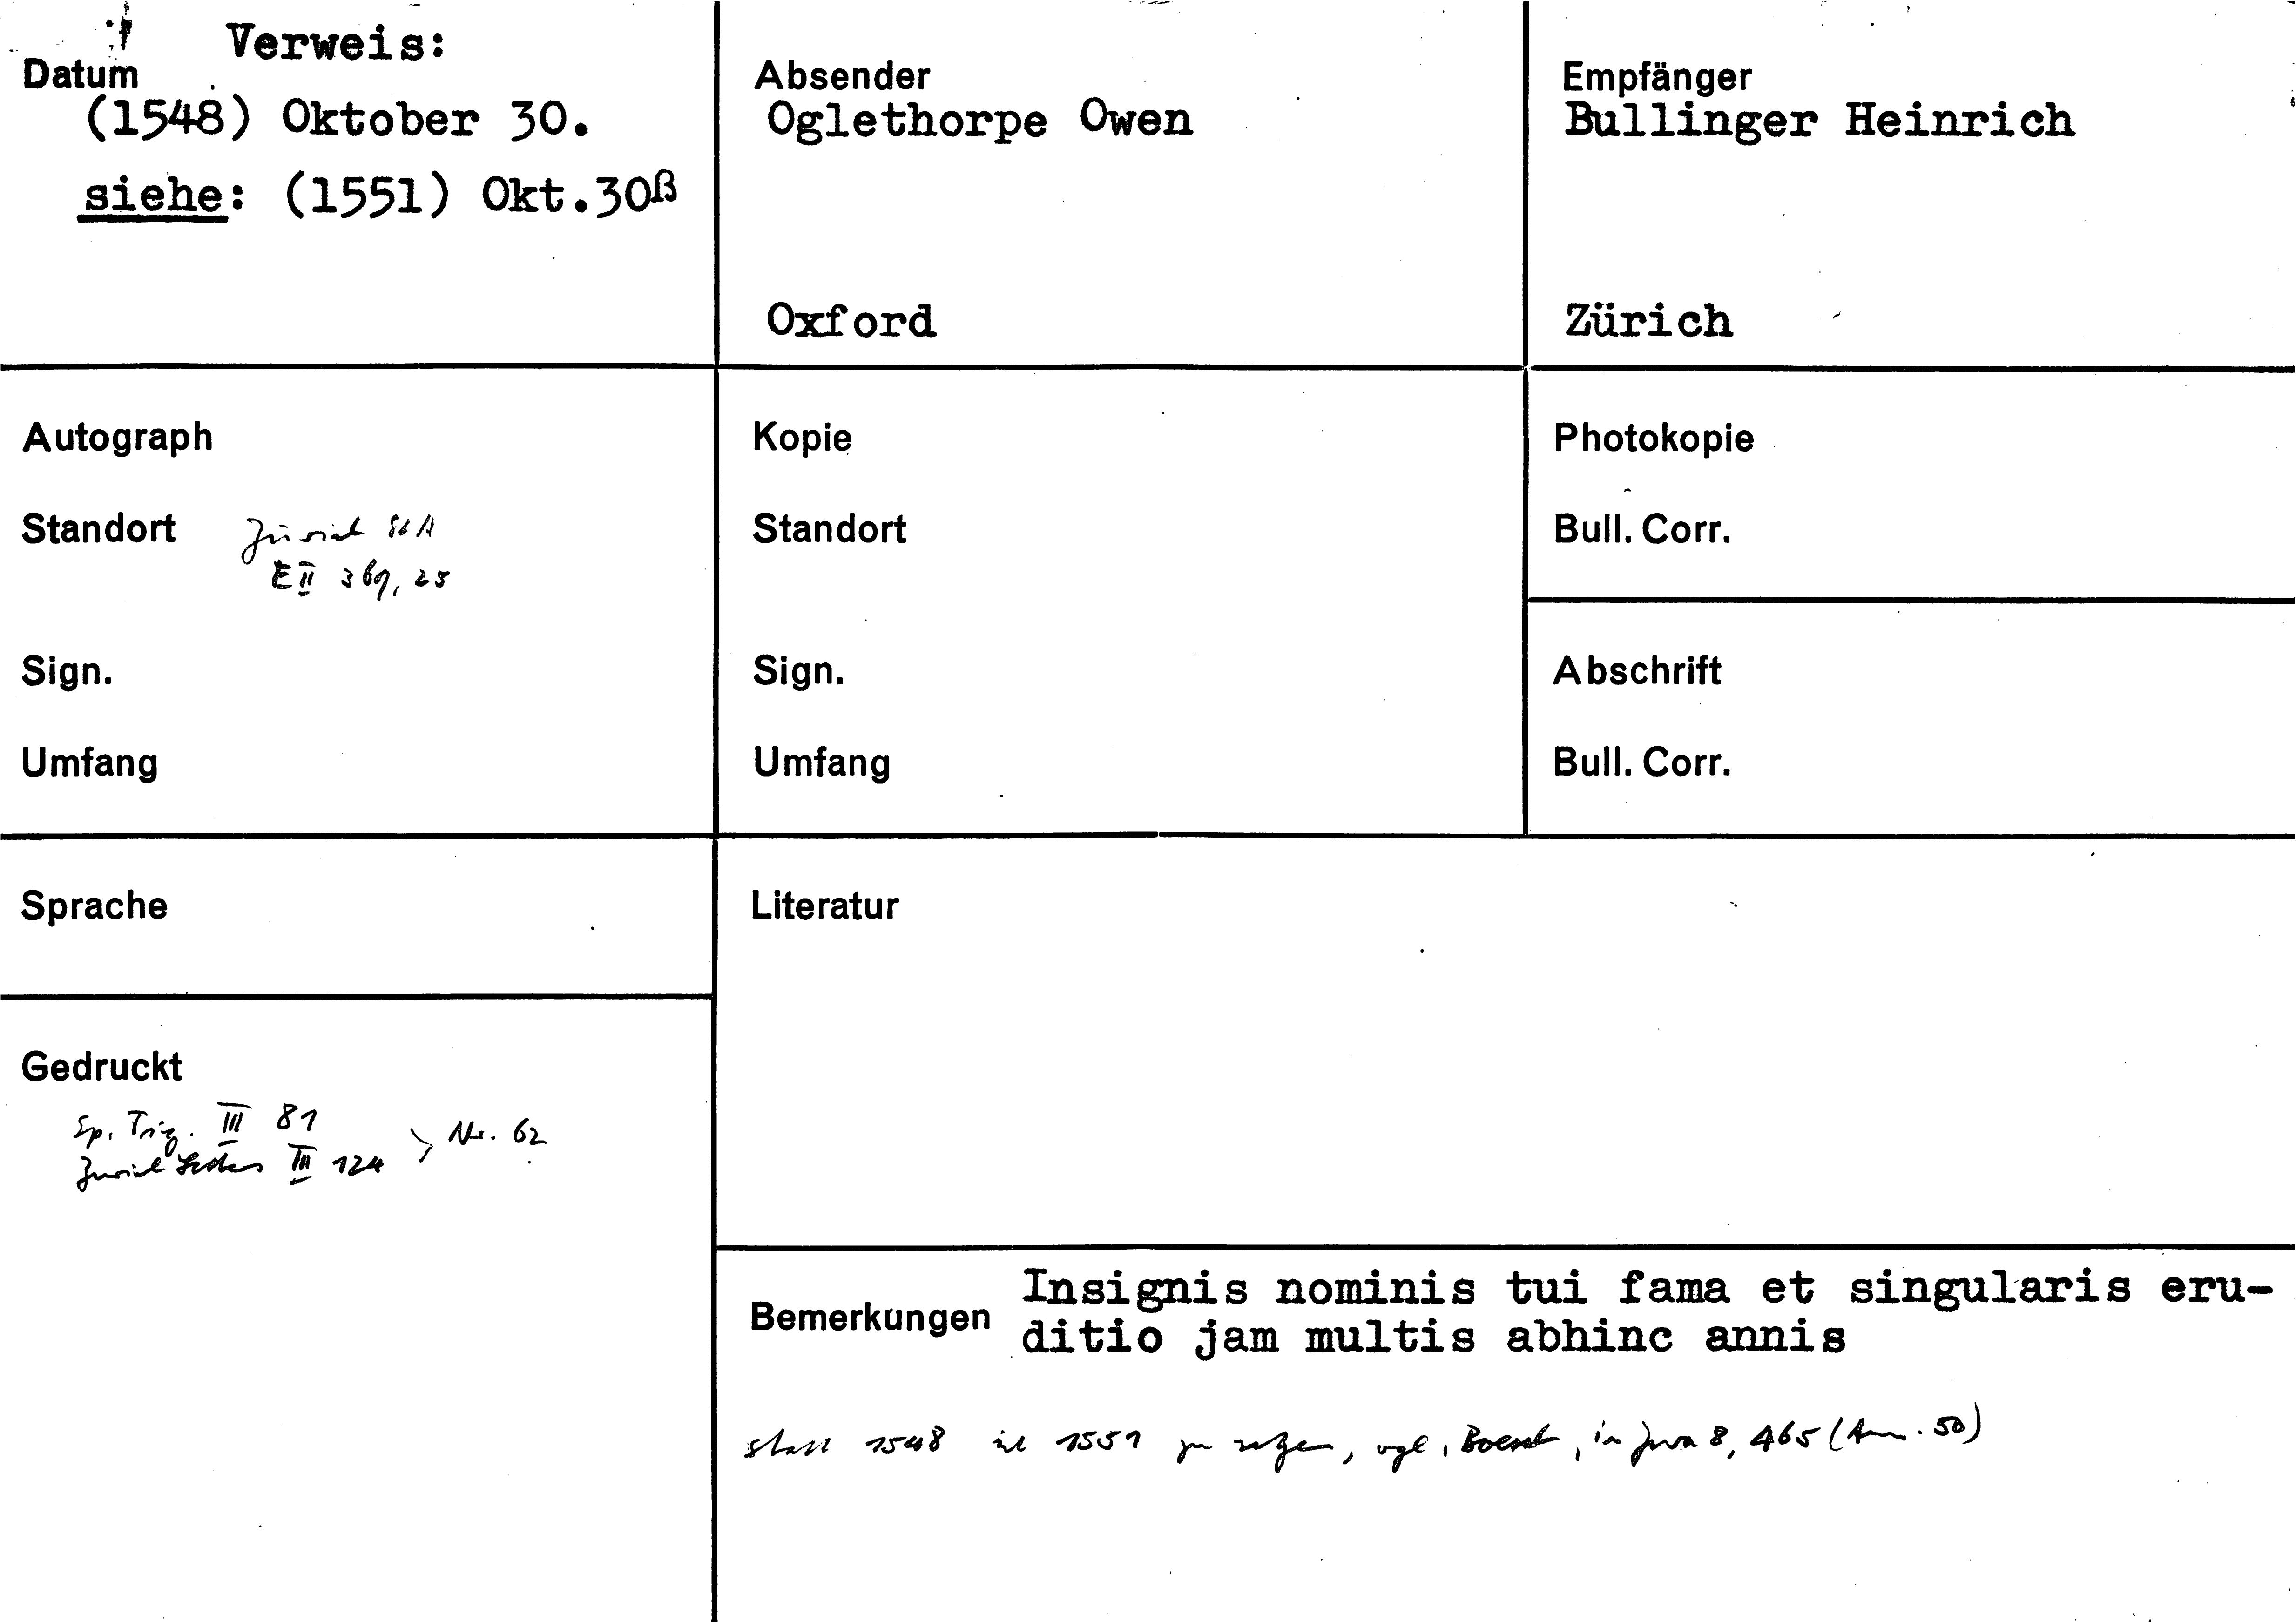 Verweis:
Datum
(1548) Oktober 30.
siehe: (1551) Okt.30ß
Absender
Oglethorpe Owen
Oxford
Empfänger
Bullinger Heinrich
Zürich
Autograph
Standort Zürich StA
E II 369, 25
Sign.
Umfang
Kopie
Standort
Sign.
Umfang
Photokopie
Bull. Corr.
Abschrift
Bull. Corr.
Sprache
Gedruckt
Ep. Tig. III 81
Zurich Letters III 124 > Nr. 62
Literatur
Bemerkungen
Insignis nominis tui fama et singularis eru-
ditio jam multis abhinc annis
statt 1548 ist 1551 zu setzen, vgl. Boesch, in Zwa 8, 465 (Anm. 50)